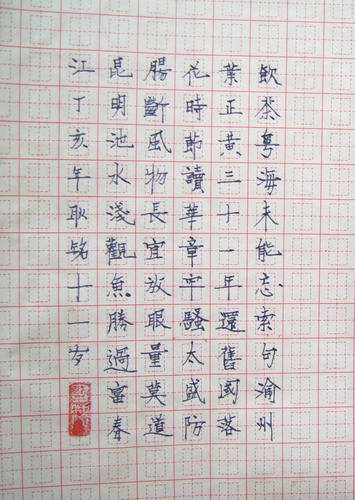 飲茶粵海未能忘索句渝州
葉正黃三十一年還舊國落
花時節讀華章牢騷太盛防
腸斷風物長宜放眼量莫道
昆明池水淺觀魚勝過富春
江丁亥年耿铭十一岁